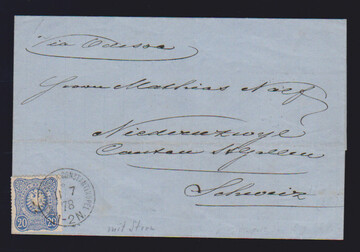 Via Odessa
Herrn Mathias Naef
Niederuzwyl
Canton St. Gallen
Schweiz
7
78
1-2N.
20
mit Stern